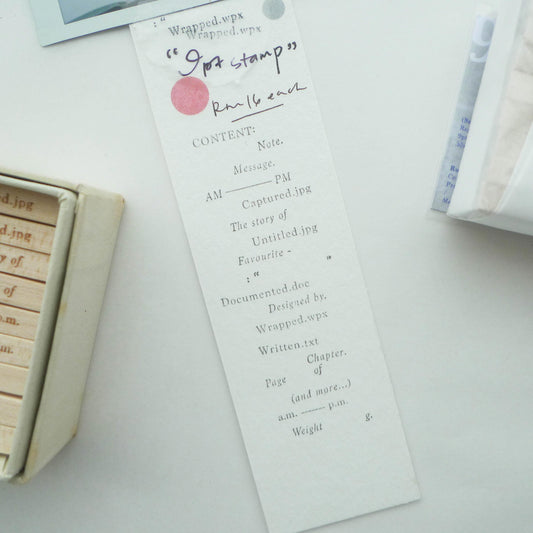 : "
Wrapped.wpx
Wrapped.wpx
"9pt stamp"
RM16 each
CONTENT:
Note.
Message.
AM ——— PM
Captured.jpg
The story of
Untitled.jpg
Favourite -
: " "
Documented.doc
Designed by.
Wrapped.wpx
Written.txt
Chapter.
Page of
(and more...)
a.m. —— p.m.
Weight g.
d.jpg
d.jpg
y of
of
o.m.
m.
9